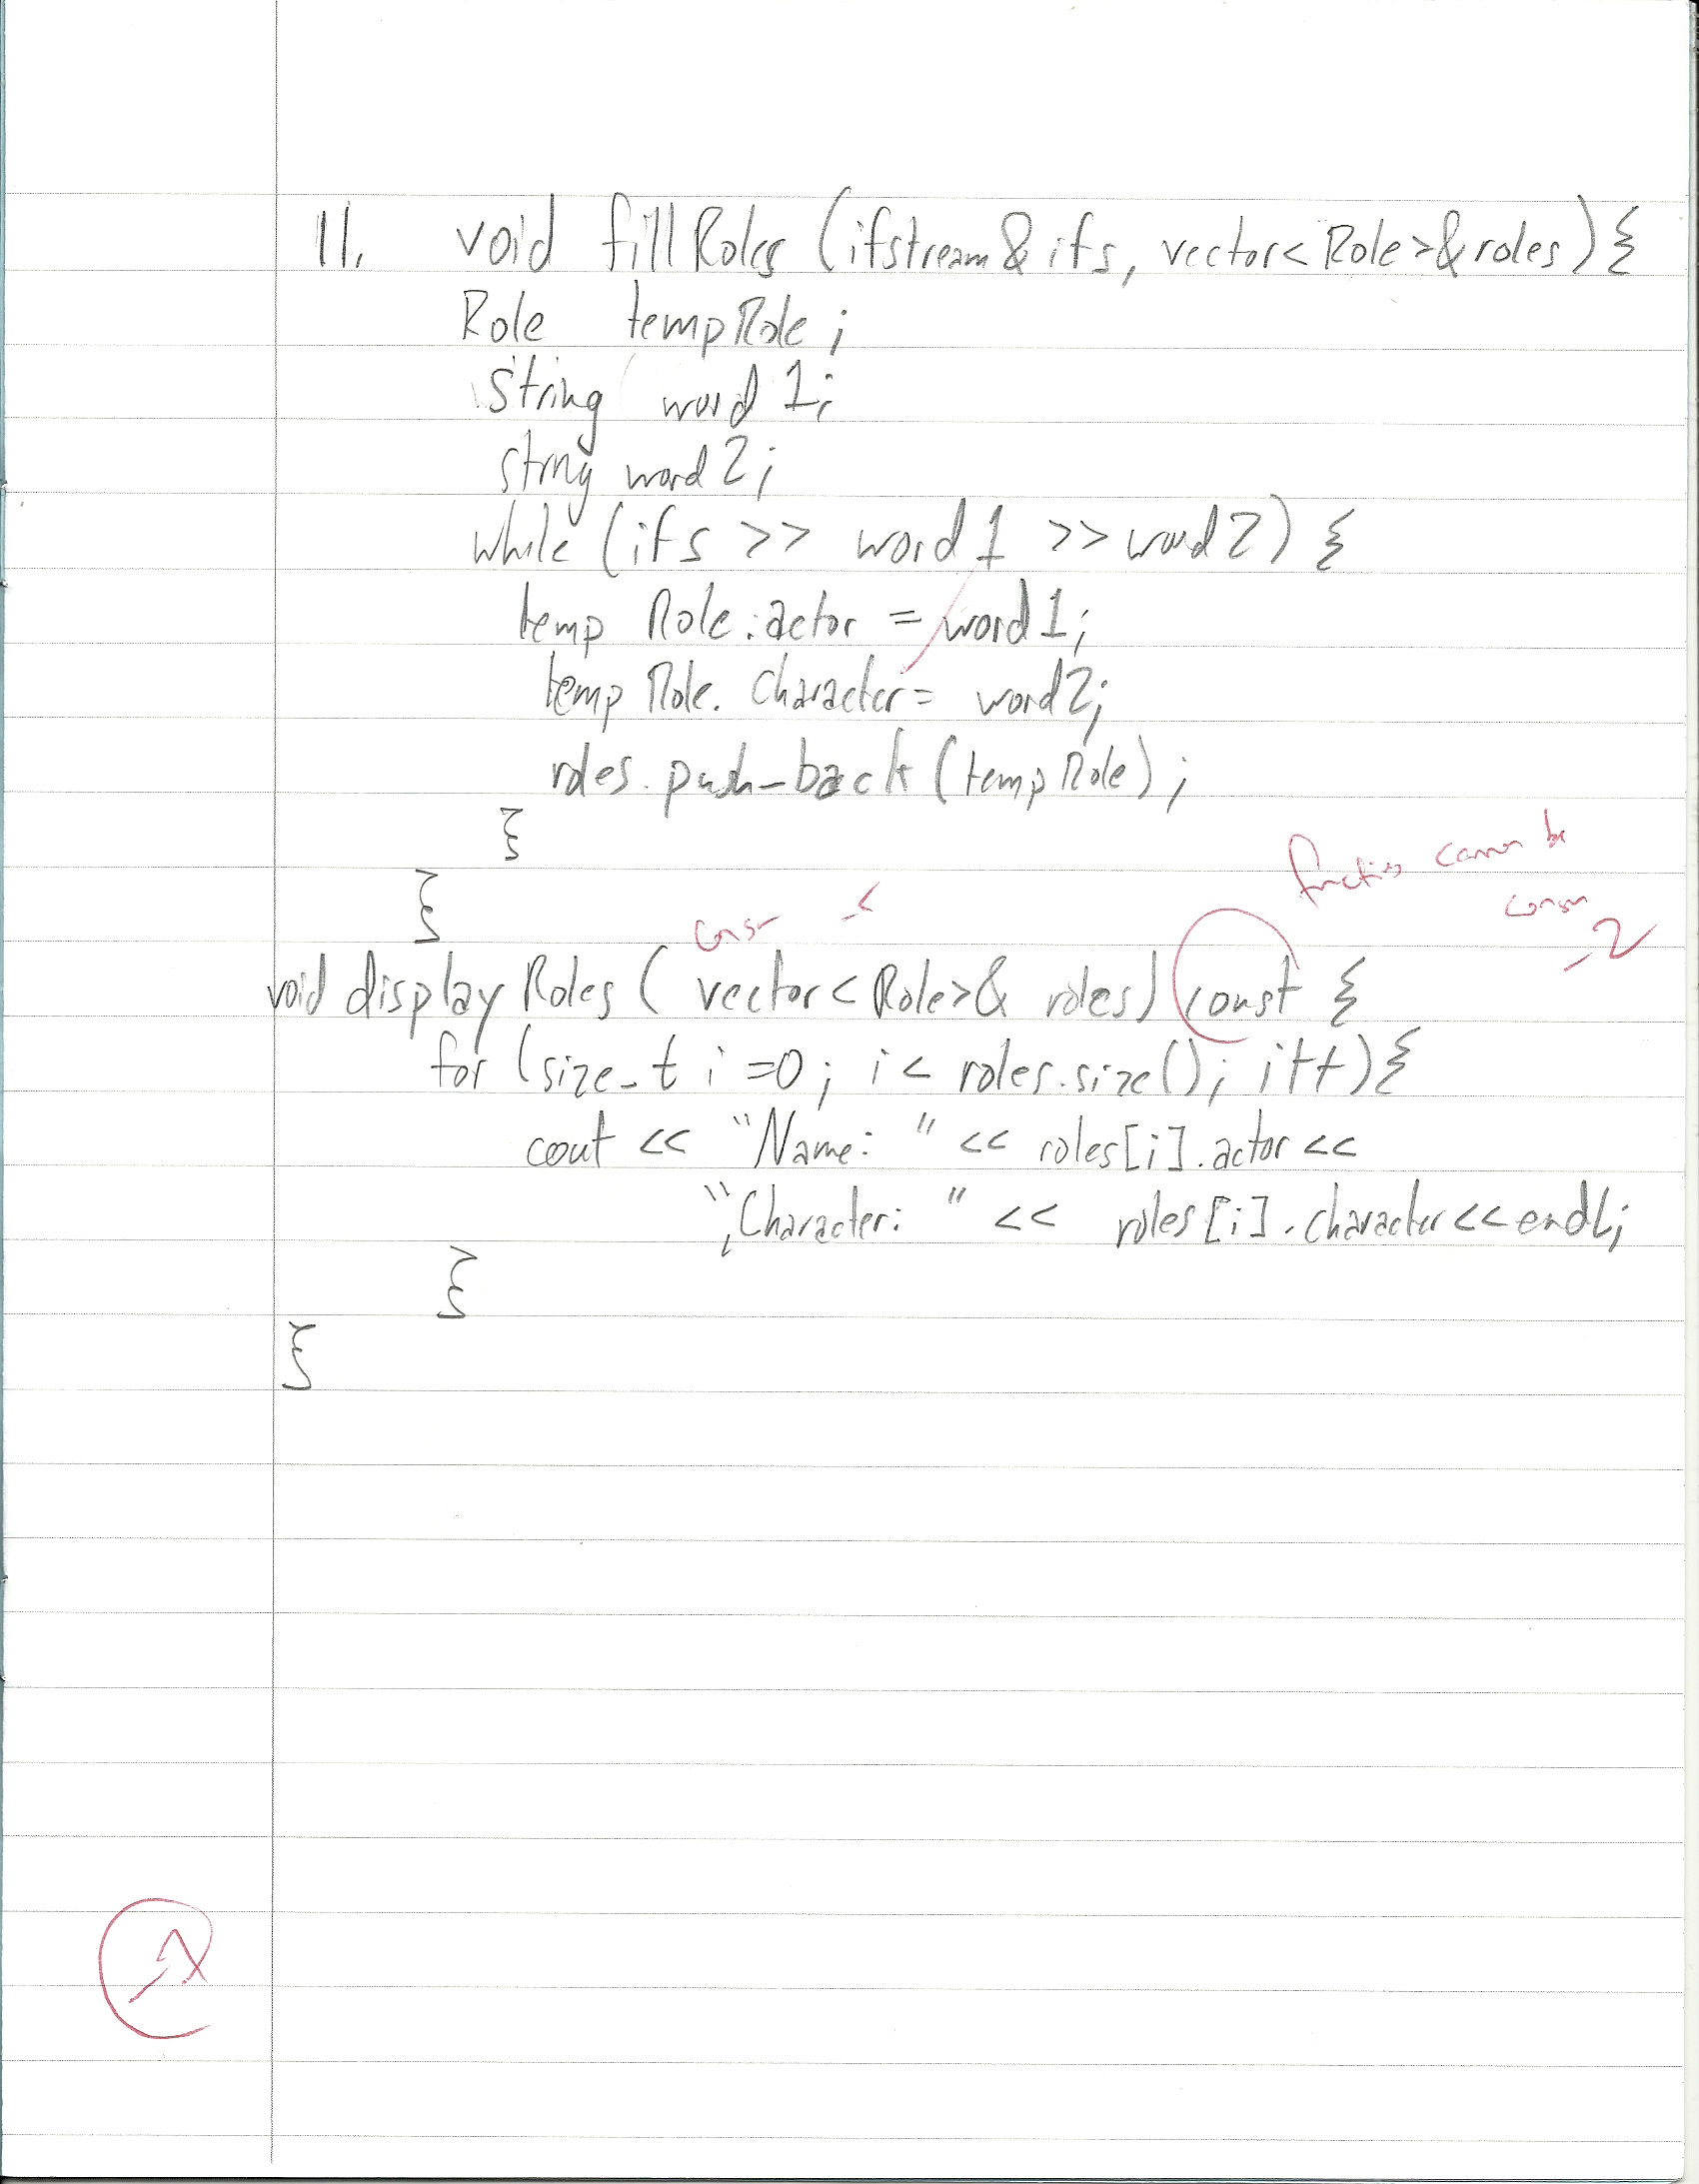 11. void fillRoles (ifstream& ifs, vector<Role>& roles) {
Role tempRole;
string word1;
string word2;
while (ifs >> word1 >> word2) {
tempRole.actor = word1;
tempRole.character = word2;
roles.push_back(tempRole);
}
}
function cannot be
const
-2
const
void displayRoles ( vector<Role>& roles) const {
for (size_t i=0; i < roles.size(); i++) {
cout << "Name: " << roles[i].actor <<
", Character: " << roles[i].character << endl;
}
}